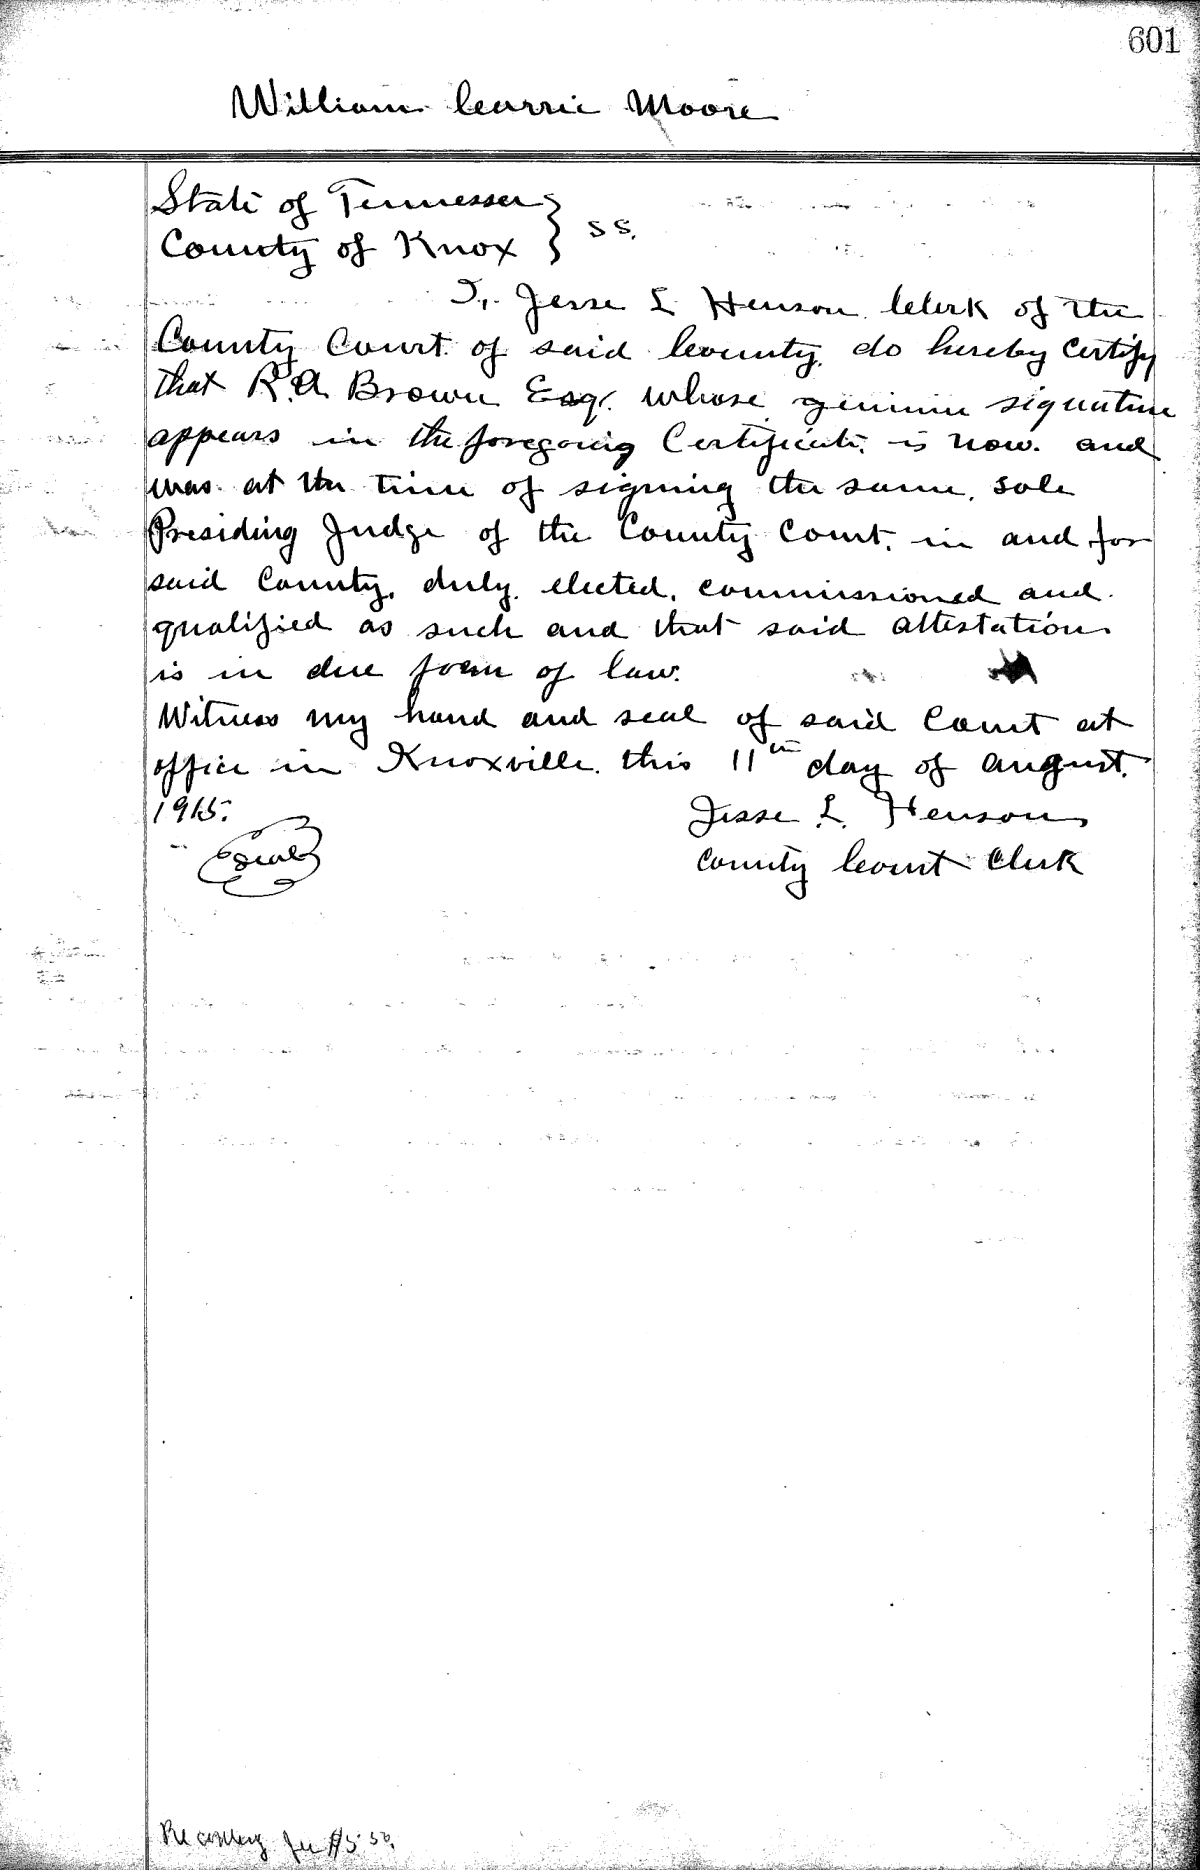 601
William Currie Moore
State of Tennessee }
County of Knox } SS.
I, Jesse L Henson Clerk of the
County Court of said County, do hereby certify
that R.A Brown Esqr. whose genuine signature
appears in the foregoing Certificate, is now. and
was at the time of signing the same, sole
Presiding Judge of the County Court, in and for
said County, duly, elected, commissioned and
qualified as such and that said attestation
is in due form of law.
Witness my hand and seal of said Court at
office in Knoxville. this 11th day of August.
1915.
Jesse L. Henson
Seal
County Court Clerk
Recording fee $5.50